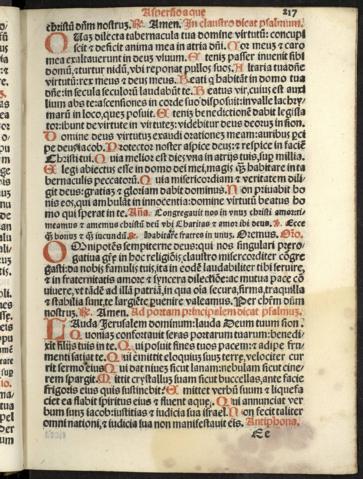 Aspersio aque 217
christū dñm nostruz. R. Amen. In claustro dicat psalmum.
Quaz dilecta tabernacula tua domine virtutū: concupi
scit & deficit anima mea in atria dñi. Cor meuz & caro
mea exaltauerunt in deus viuum. Et eniz passer inuenit sibi
domū, & turtur nidū, vbi reponat pullos suos. Altaria tua dñe
virtutū: rex meus & deus meus. Beati q habitāt in domo tua
dñe: in secula seculorū laudabūt te. Beatus vir, cuius est auxi
lium abs te: ascensiones in corde suo disposuit: in valle lachry
marū in loco, quez posuit. Eteniz benedictionē dabit legisla
tor: ibunt de virtute in virtutez: videbitur deus deoruz in sion.
Domine deus virtutuz exaudi orationez meam: auribus peí
pe deus iacob. Protector noster aspice deus: & respice in faciē
Christi tui. Quia melior est dies vna in atrijs tuis, sup millia.
Elegi abiectus esse in domo dei mei, magis q̄ habitare in ta
bernaculis peccatorū. Quia misericordiam & veritatem dili
git deus: gratiaz & gloriam dabit dominus. Non priuabit bo
nis eos, qui ambulāt in innocentia: domine virtutū beatus ho
mo qui sperat in te. Aña. Congregauit nos in vnus christi amor: ti
meamus & amemus christū deū vbi Charitas & amor ibi deus. V. Ecce
q̄ bonus & q̄ iucundū. R. Habitare fratres in vnum. Oremus. Oro.
Omnipotēs sempiterne deus: qui nos singulari prero
gatiua grē in hoc religiōis claustro misericorditer cōgre
gasti: da nobis famulis tuis, ita in eodē laudabiliter tibi seruire,
& in fraternitatis amore & syncera dilectiōe ac mutua pace cō
uiuere, vt tādē ad illā patriā, in qua oīa secura, firma, tranquilla
& stabilia sunt, te largiēte puenire valeamus. Per christū dñm
nostruz. R. Amen. Ad portam principalem dicat psalmuz.
Lauda Jerusalem dominum: lauda Deum tuum sion.
Quoniaz confortauit seras portarum tuarum: benedi
xit filijs tuis in te. Qui posuit fines tuos pacem: & adipe fru
menti satiat te. Qui emittit eloquiuz suuz terre, velociter cur
rit sermo eius. Qui dat niuez sicut lanam: nebulam sicut cine
rem spargit. Mittit crystalluz suam sicut buccellas, ante facie
frigoris eius quis sustinebit? Emittet verbū suum & liquefa
ciet ea: flabit spiritus eius & fluent aque. Qui annunciat ver
bum suuz iacob: iustitias & iudicia sua israel. Non fecit taliter
omni nationi, & iudicia sua non manifestauit eis. Antiphona.
Ee